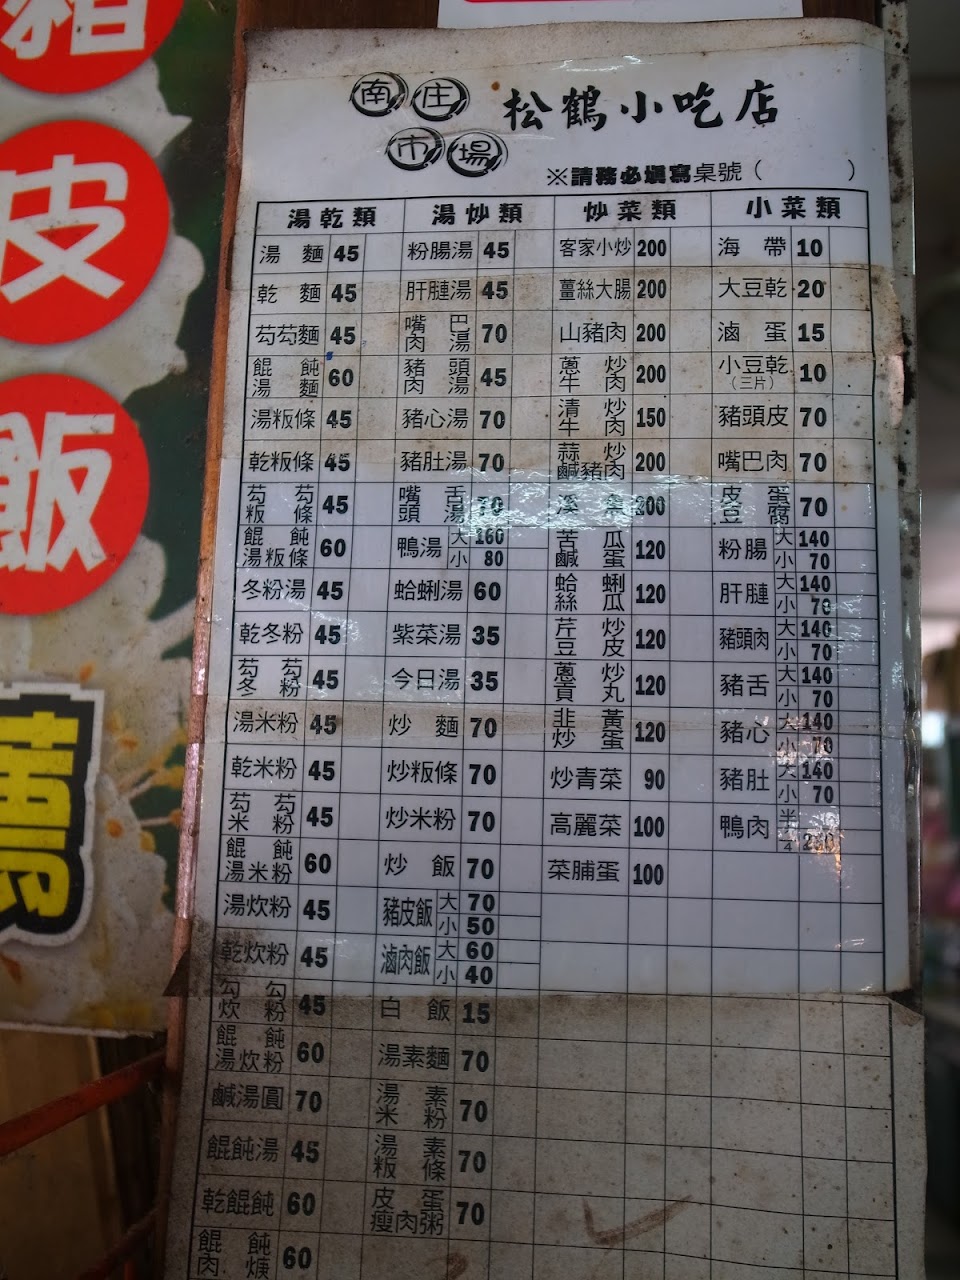 豬
皮
飯
萬
南庄
市場
松鶴小吃店
※請務必填寫桌號（　　　）
湯乾類
湯麵 45
乾麵 45
芶芶麵 45
餛飩湯麵 60
湯粄條 45
乾粄條 45
芶芶粄條 45
餛飩湯粄條 60
冬粉湯 45
乾冬粉 45
芶芶冬粉 45
湯米粉 45
乾米粉 45
芶芶米粉 45
餛飩湯米粉 60
湯炊粉 45
乾炊粉 45
勾勾炊粉 45
餛飩湯炊粉 60
鹹湯圓 70
餛飩湯 45
乾餛飩 60
餛飩肉焿 60
湯炒類
粉腸湯 45
肝膁湯 45
嘴巴肉湯 70
豬頭肉湯 45
豬心湯 70
豬肚湯 70
嘴舌頭湯 70
鴨湯 大 160
小 80
蛤蜊湯 60
紫菜湯 35
今日湯 35
炒麵 70
炒粄條 70
炒米粉 70
炒飯 70
豬皮飯 大 70
小 50
滷肉飯 大 60
小 40
白飯 15
湯素麵 70
湯素米粉 70
湯素粄條 70
皮蛋瘦肉粥 70
炒菜類
客家小炒 200
薑絲大腸 200
山豬肉 200
蔥炒牛肉 200
清炒牛肉 150
蒜炒鹹豬肉 200
溪魚 200
苦瓜鹹蛋 120
蛤蜊絲瓜 120
芹炒豆皮 120
蔥炒貢丸 120
韭黃炒蛋 120
炒青菜 90
高麗菜 100
菜脯蛋 100
小菜類
海帶 10
大豆乾 20
滷蛋 15
小豆乾（三片） 10
豬頭皮 70
嘴巴肉 70
皮蛋豆腐 70
粉腸 大 140
小 70
肝膁 大 140
小 70
豬頭肉 大 140
小 70
豬舌 大 140
小 70
豬心 大 140
小 70
豬肚 大 140
小 70
鴨肉 半